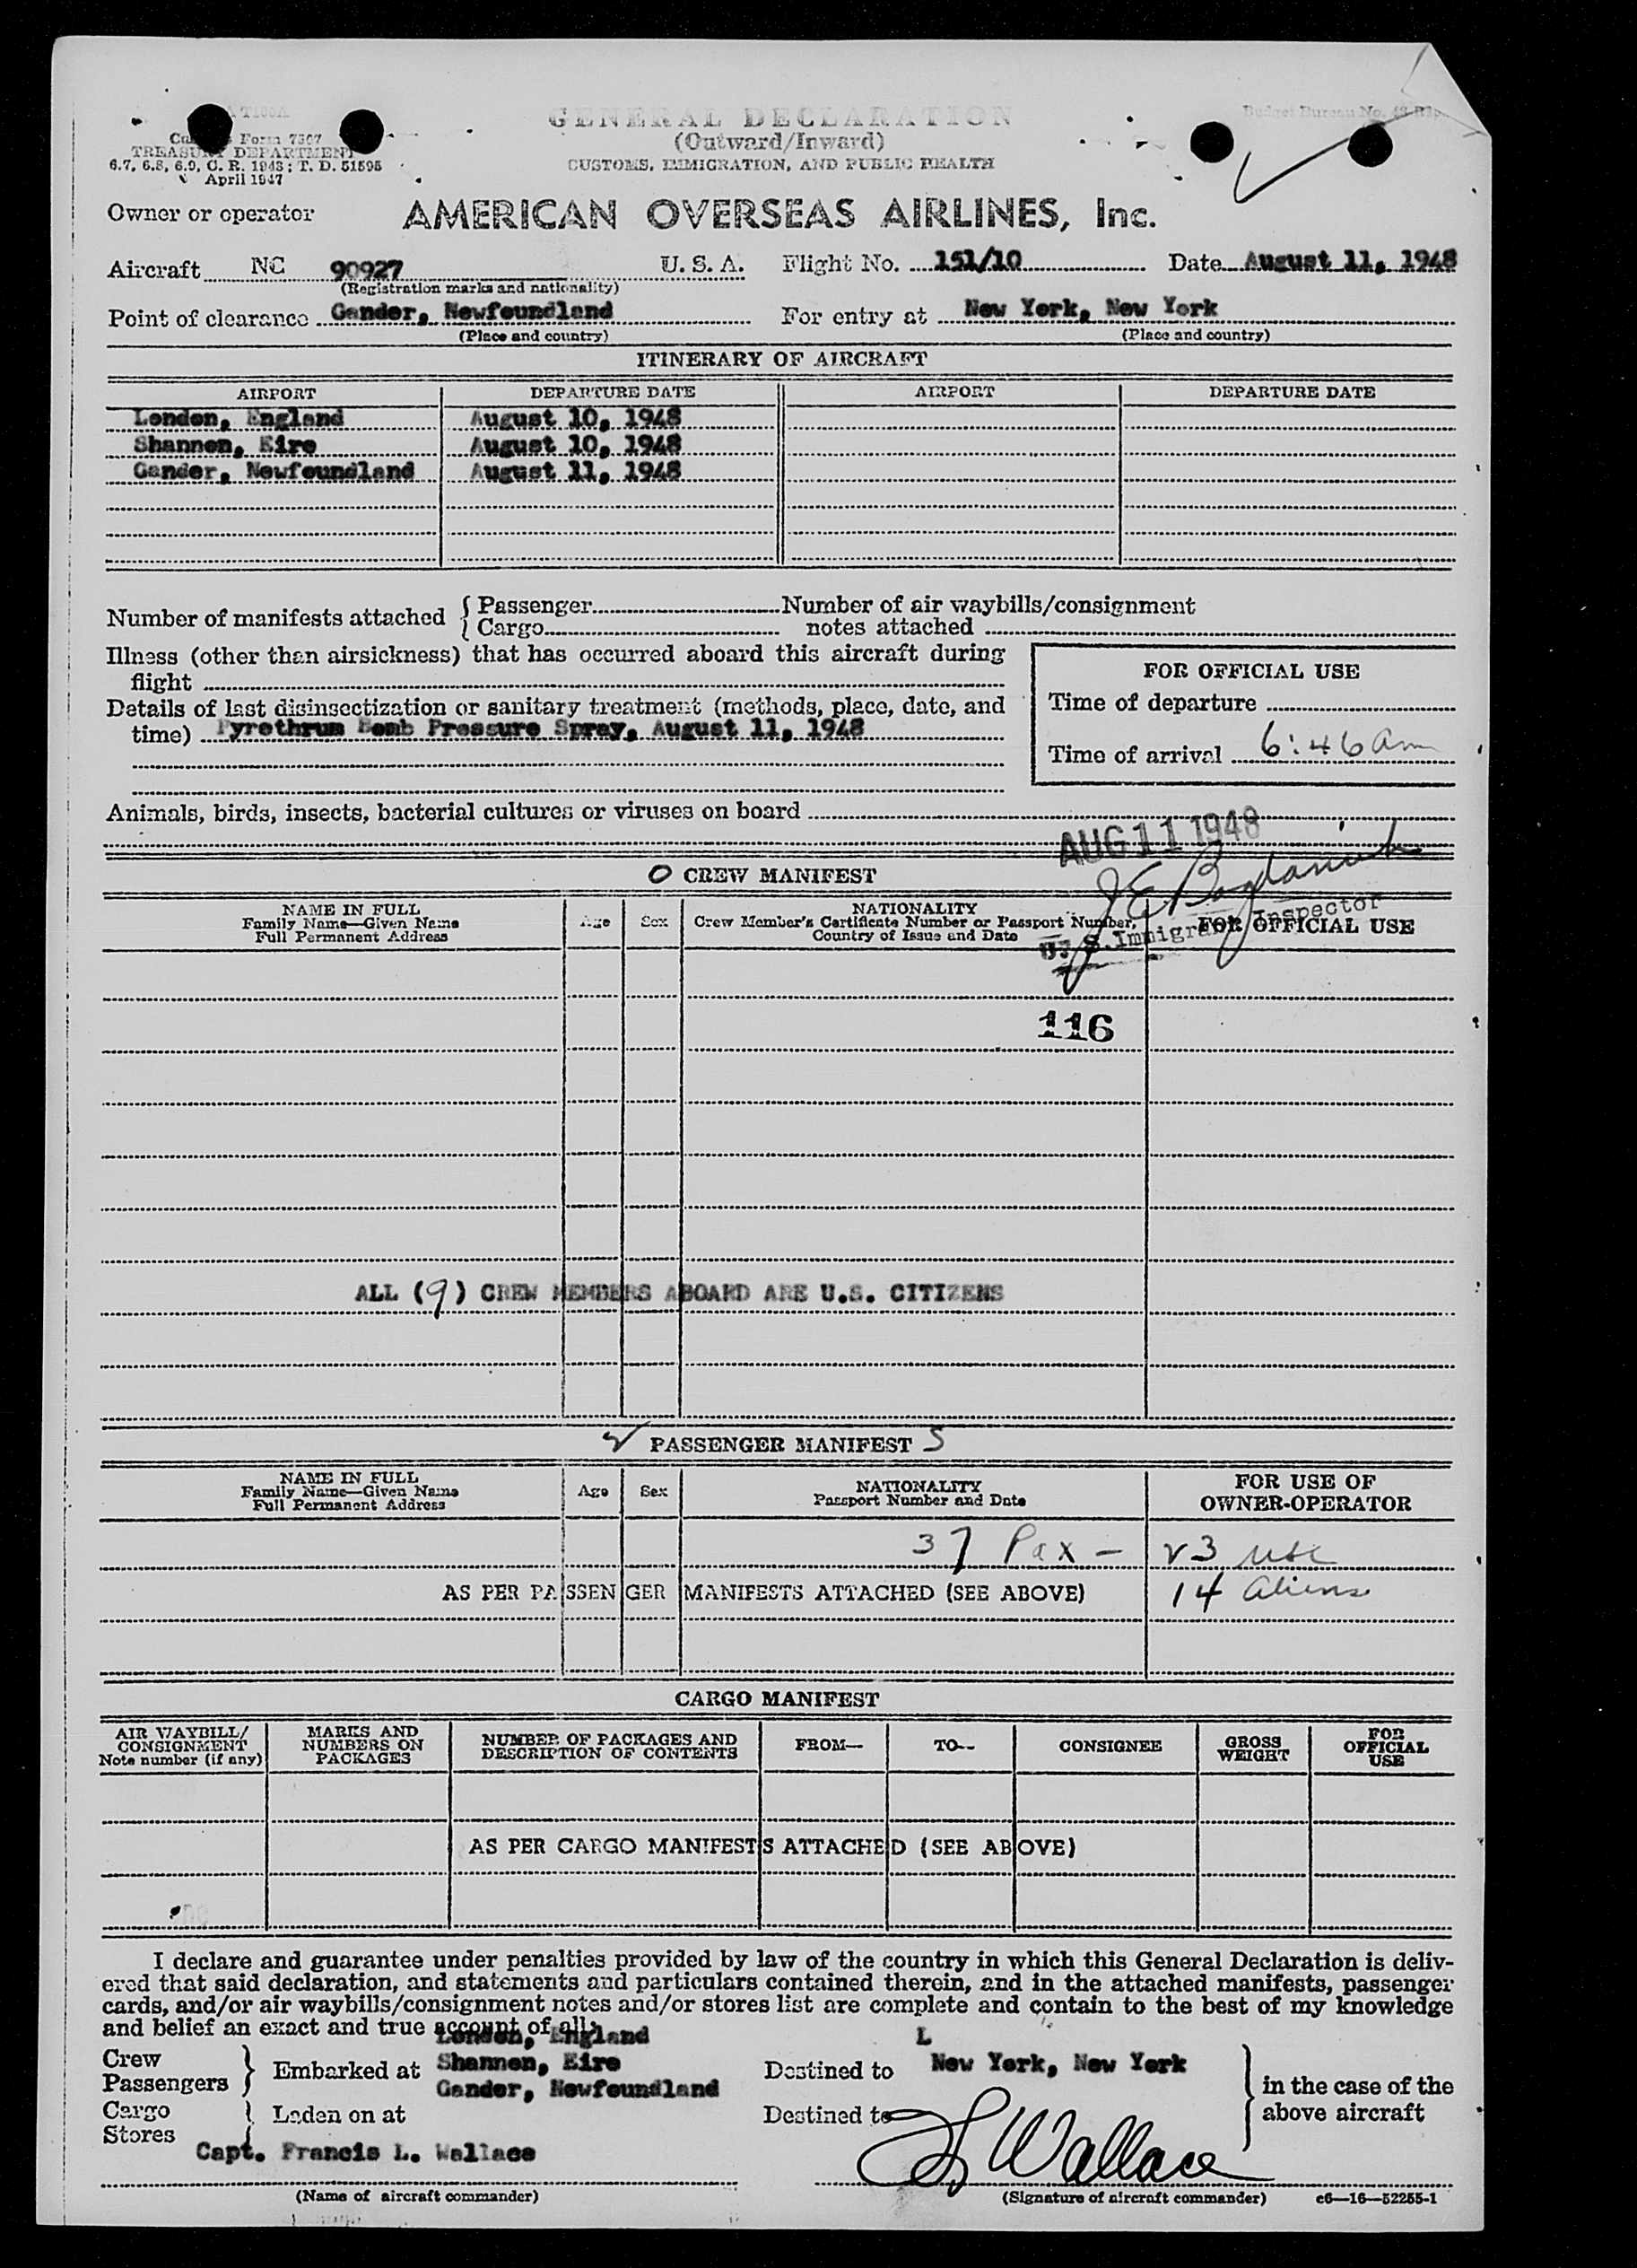 GENERAL DECLARATION
(Outward/Inward)
CUSTOMS, IMMIGRATION, AND PUBLIC HEALTH
Form 7507
TREASURY DEPARTMENT
6.7, 6.8, 6.9, C. R. 1943; T. D. 51595
April 1947
Budget Bureau No.
Owner or operator AMERICAN OVERSEAS AIRLINES, Inc.
Aircraft NC 90927 U. S. A. Flight No. 151/10 Date August 11, 1948
(Registration marks and nationality)
Point of clearance Gander, Newfoundland For entry at New York, New York
(Place and country) (Place and country)
ITINERARY OF AIRCRAFT
AIRPORT DEPARTURE DATE AIRPORT DEPARTURE DATE
London, England August 10, 1948
Shannon, Eire August 10, 1948
Gander, Newfoundland August 11, 1948
Number of manifests attached { Passenger Number of air waybills/consignment
Cargo notes attached
Illness (other than airsickness) that has occurred aboard this aircraft during
flight
Details of last disinsectization or sanitary treatment (methods, place, date, and
time) Pyrethrum Bomb Pressure Spray, August 11, 1948
FOR OFFICIAL USE
Time of departure
Time of arrival 6:46 am
Animals, birds, insects, bacterial cultures or viruses on board
AUG 11 1948
O CREW MANIFEST
U. S. Immigrant Inspector
NAME IN FULL
Family Name—Given Name
Full Permanent Address
Age Sex
NATIONALITY
Crew Member's Certificate Number or Passport Number,
Country of Issue and Date
FOR OFFICIAL USE
116
ALL (9) CREW MEMBERS ABOARD ARE U.S. CITIZENS
PASSENGER MANIFEST S
NAME IN FULL
Family Name—Given Name
Full Permanent Address
Age Sex
NATIONALITY
Passport Number and Date
FOR USE OF
OWNER-OPERATOR
37 Pax — 23 USC
AS PER PASSENGER MANIFESTS ATTACHED (SEE ABOVE) 14 aliens
CARGO MANIFEST
AIR WAYBILL/
CONSIGNMENT
Note number (if any)
MARKS AND
NUMBERS ON
PACKAGES
NUMBER OF PACKAGES AND
DESCRIPTION OF CONTENTS
FROM— TO— CONSIGNEE
GROSS
WEIGHT
FOR
OFFICIAL
USE
AS PER CARGO MANIFESTS ATTACHED (SEE ABOVE)
I declare and guarantee under penalties provided by law of the country in which this General Declaration is deliv-
ered that said declaration, and statements and particulars contained therein, and in the attached manifests, passenger
cards, and/or air waybills/consignment notes and/or stores list are complete and contain to the best of my knowledge
and belief an exact and true account of all:
London, England L
Crew
Passengers } Embarked at Shannon, Eire Destined to New York, New York
Gander, Newfoundland
Cargo
Stores } Laden on at Destined to
in the case of the
above aircraft
Capt. Francis L. Wallace FL Wallace
(Name of aircraft commander) (Signature of aircraft commander) c6—16—52255-1